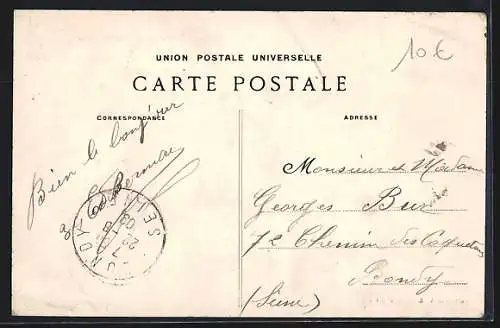 10 €
UNION POSTALE UNIVERSELLE
CARTE POSTALE
CORRESPONDANCE
ADRESSE
Bien le bonjour
Monsieur et Madame
Georges
72 Chemin des Coquetiers
Bondy
(Seine)